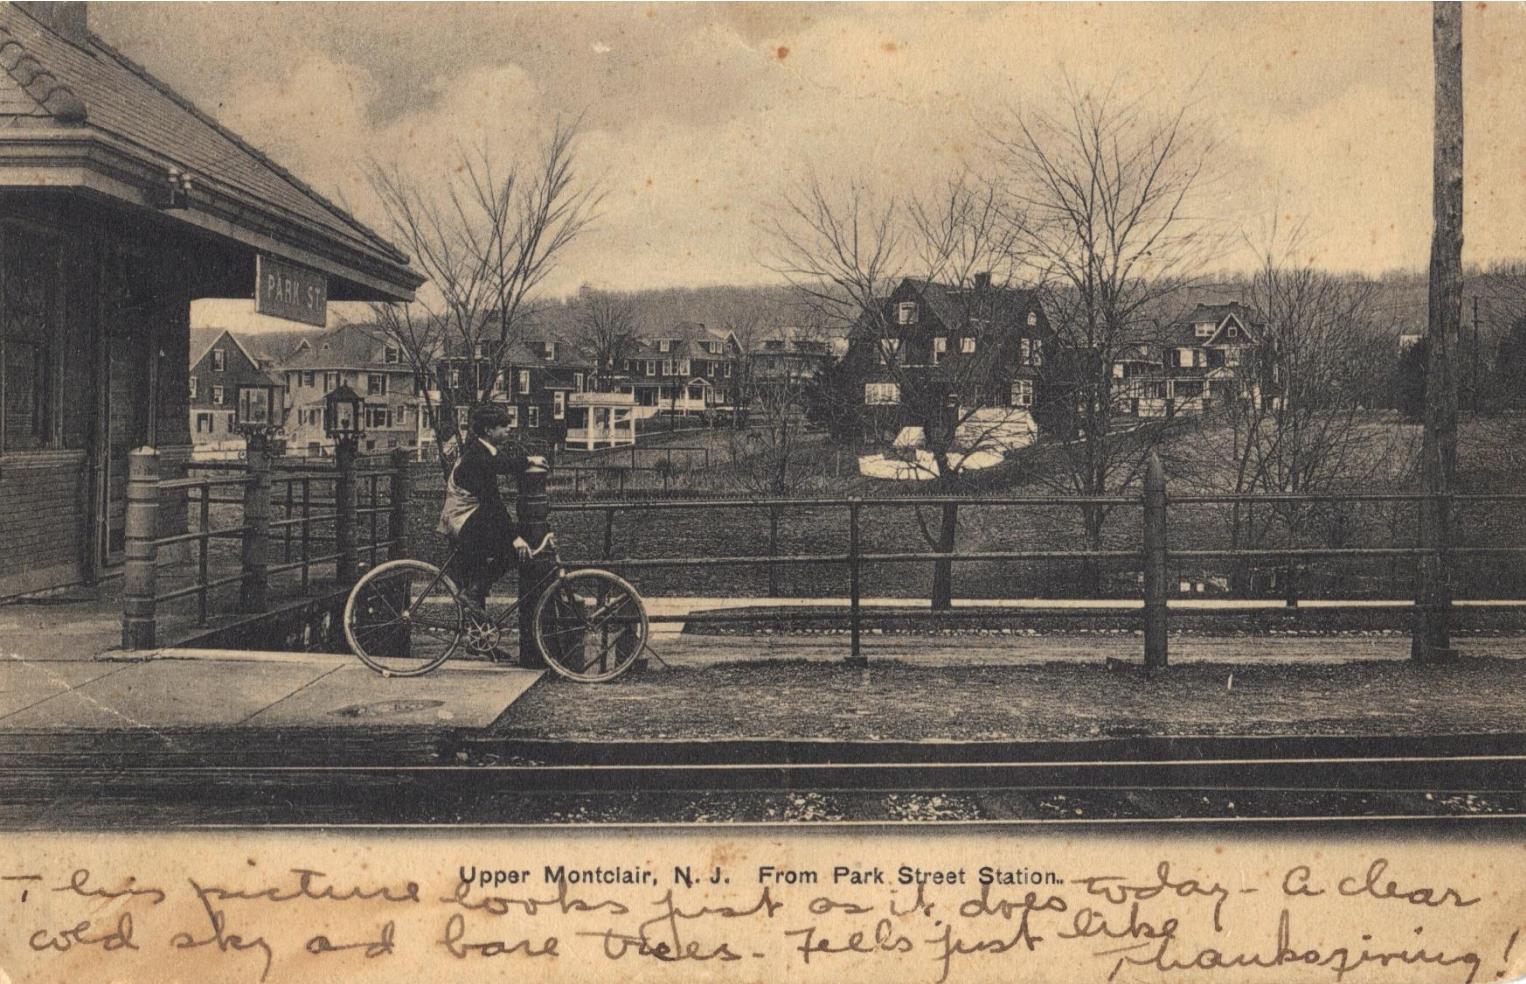 PARK ST.
Upper Montclair, N. J. From Park Street Station.
This picture looks just as it does today - A clear
cold sky ad bare trees. Feels just like
Thanksgiving!